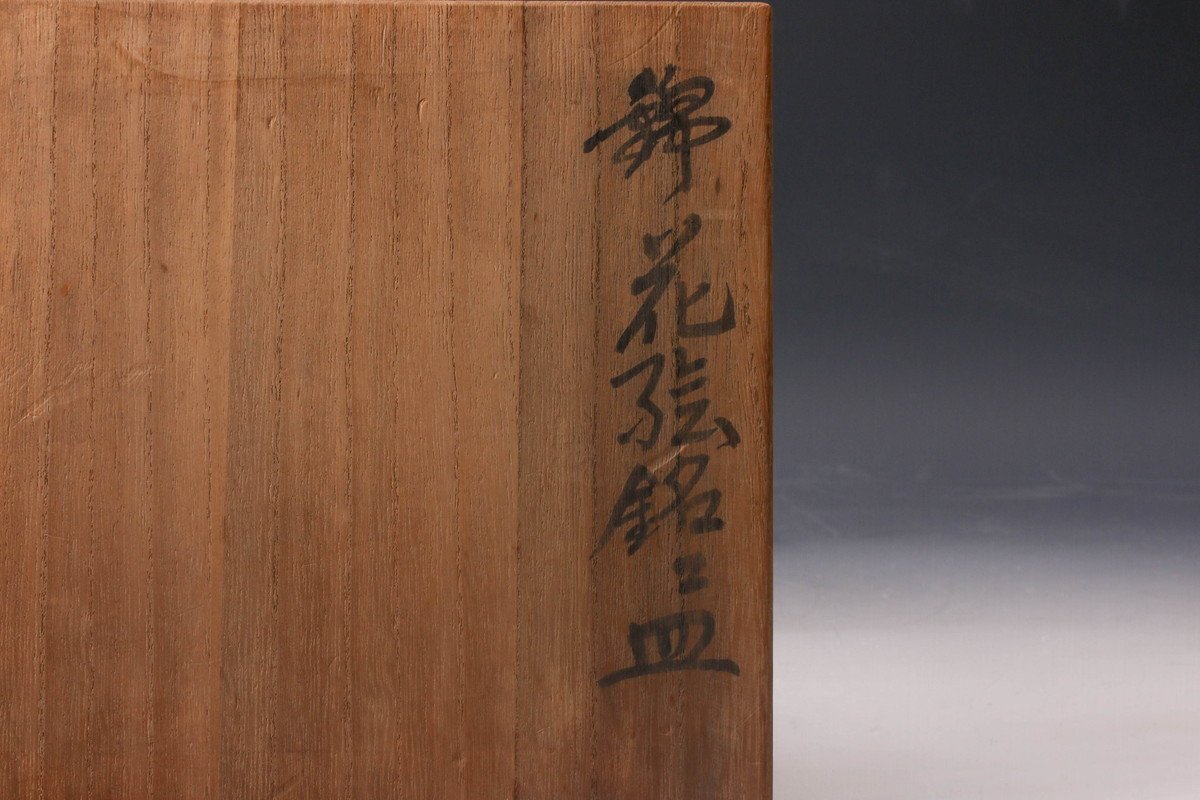 錦花絵銘々皿